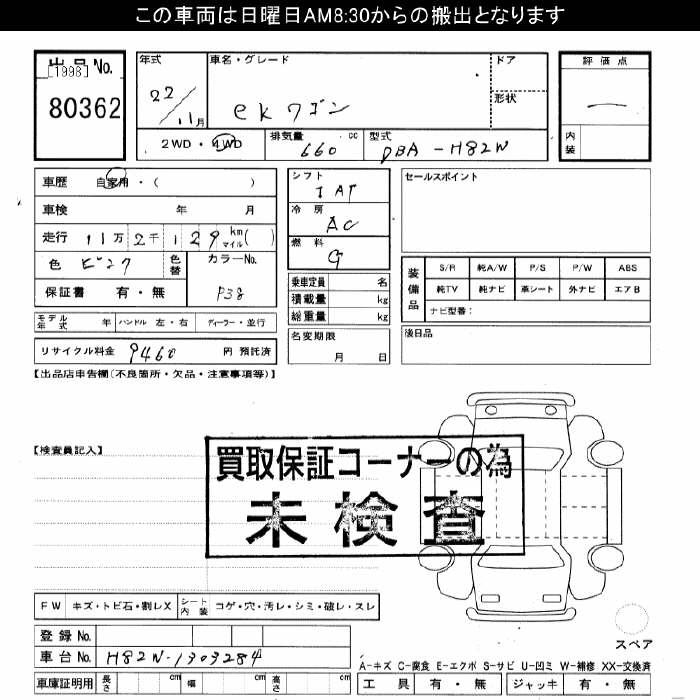 この車両は日曜日AM8:30からの搬出となります
出品No.
[1998]
80362
年式
22/11月
車名・グレード
ekワゴン
ドア
形状
評価点
―
内装
2WD・4WD
排気量 660 cc
型式 DBA-H82W
車歴 自家用・( )
車検 年 月
走行 11万2千129 km マイル( )
色 ピンク
色替
カラーNo. P38
保証書 有・無
シフト IAT
冷房 AC
燃料 G
乗車定員 名
積載量 kg
総重量 kg
名変期限
月 日
セールスポイント
装備品
S/R 純A/W P/S P/W ABS
純TV 純ナビ 革シート 外ナビ エアB
ナビ型番:
後日品
モデル年式 年 ハンドル 左・右 ディーラー・並行
リサイクル料金 9460 円 預託済
【出品店申告欄(不良箇所・欠品・注意事項等)】
【検査員記入】
買取保証コーナーの為
未検査
FW キズ・トビ石・割レX シート内装 コゲ・穴・汚レ・シミ・破レ・スレ
登録No.
車台No. H82W-1303284
車庫証明用 長さ cm 幅 cm 高さ cm
スペア
A-キズ C-腐食 E-エクボ S-サビ U-凹ミ W-補修 XX-交換済
工具 有・無 ジャッキ 有・無